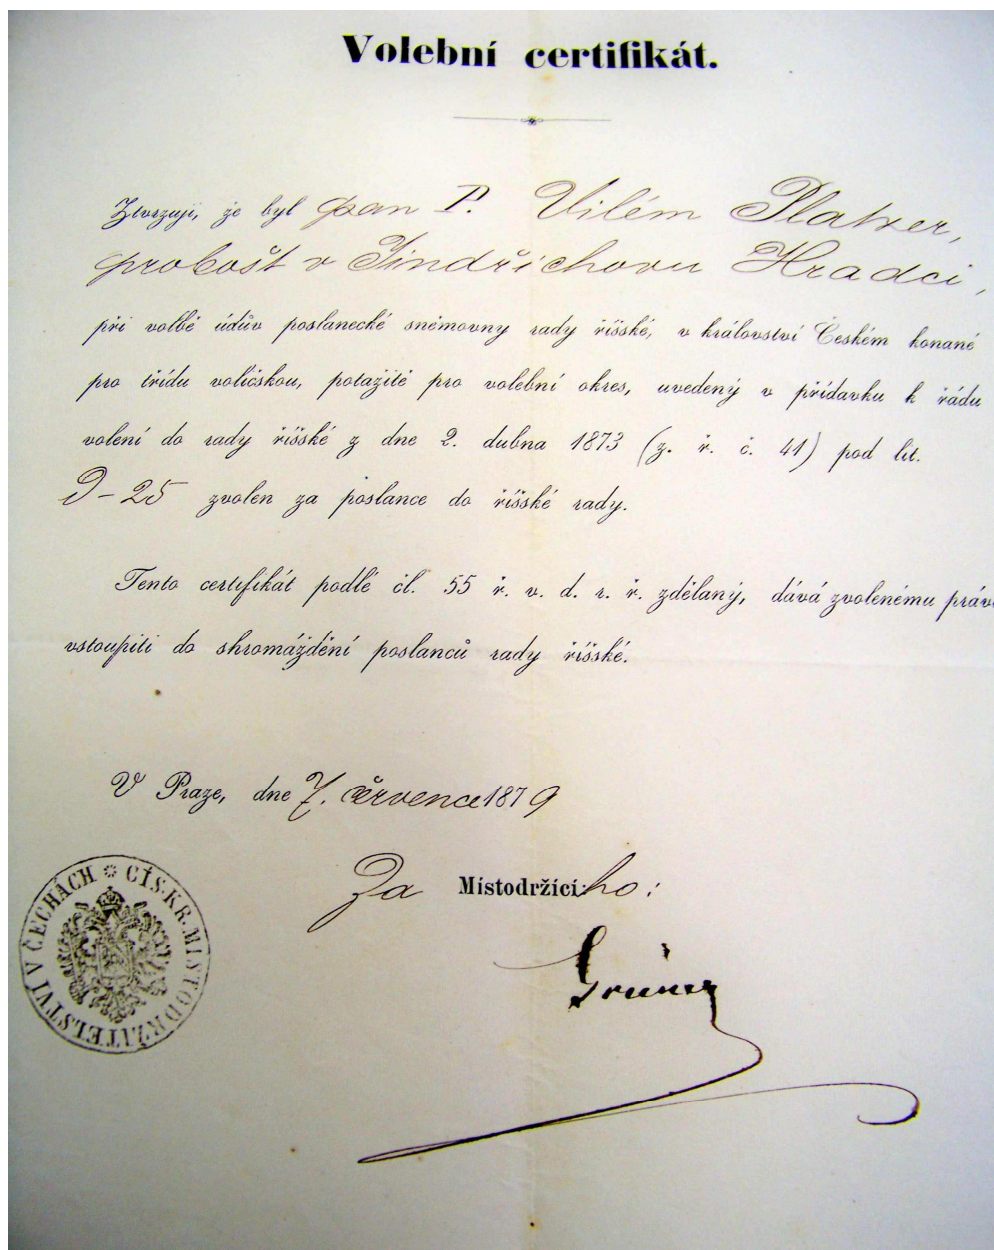 Volební certifikát.
Ztvrzuji, že byl pan P. Vilém Platzer,
probošt v Jindřichovu Hradci,
při volbě údův poslanecké sněmovny rady říšské, v království Českém konané
pro třídu voličskou, potažitě pro volební okres, uvedený v přídavku k řádu
volení do rady říšské z dne 2. dubna 1873 (z. ř. č. 41) pod lit.
D-25 zvolen za poslance do říšské rady.
Tento certifikát podlé čl. 55 ř. v. d. r. ř. zdělaný, dává zvolenému práv
vstoupiti do shromáždění poslanců rady říšské.
V Praze, dne 7. července 1879
Za Místodržícího:
CÍS. KR. MÍSTODRŽITELSTVÍ V ČECHÁCH